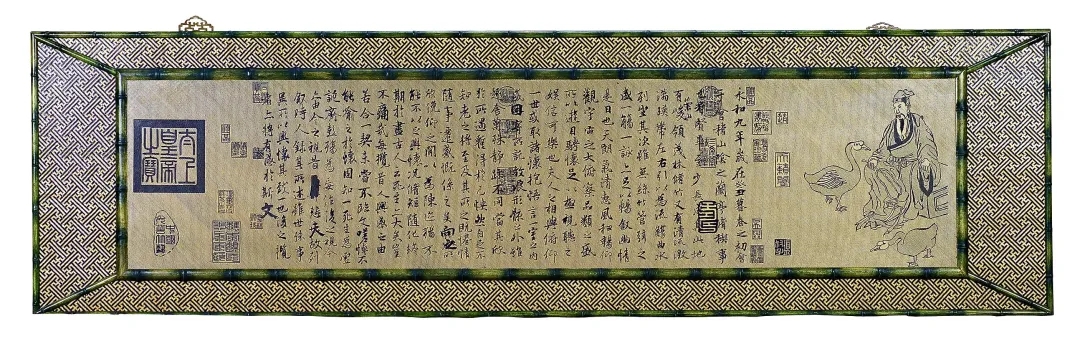 永和九年歲在癸丑暮春之初會
于會稽山陰之蘭亭脩禊事
也羣賢畢至少長咸集此地
有崇山峻領茂林脩竹又有清流激
湍暎帶左右引以為流觴曲水
列坐其次雖無絲竹管弦之
盛一觴一詠亦足以暢叙幽情
是日也天朗氣清惠風和暢仰
觀宇宙之大俯察品類之盛
所以遊目騁懷足以極視聽之
娛信可樂也夫人之相與俯仰
一世或取諸懷抱悟言一室之內
或因寄所託放浪形骸之外雖
趣舍萬殊靜躁不同當其欣
於所遇暫得於己怏然自足不
知老之將至及其所之既惓情
隨事遷感慨係之矣向之所
欣俛仰之間以為陳迹猶不
能不以之興懷況脩短隨化終
期於盡古人云死生亦大矣豈
不痛哉每攬昔人興感之由
若合一契未嘗不臨文嗟悼不
能喻之於懷固知一死生為虛
誕齊彭殤為妄作後之視今
亦由今之視昔悲夫故列
叙時人錄其所述雖世殊事
異所以興懷其致一也後之攬
者亦將有感於斯文
太上
皇帝
之寶